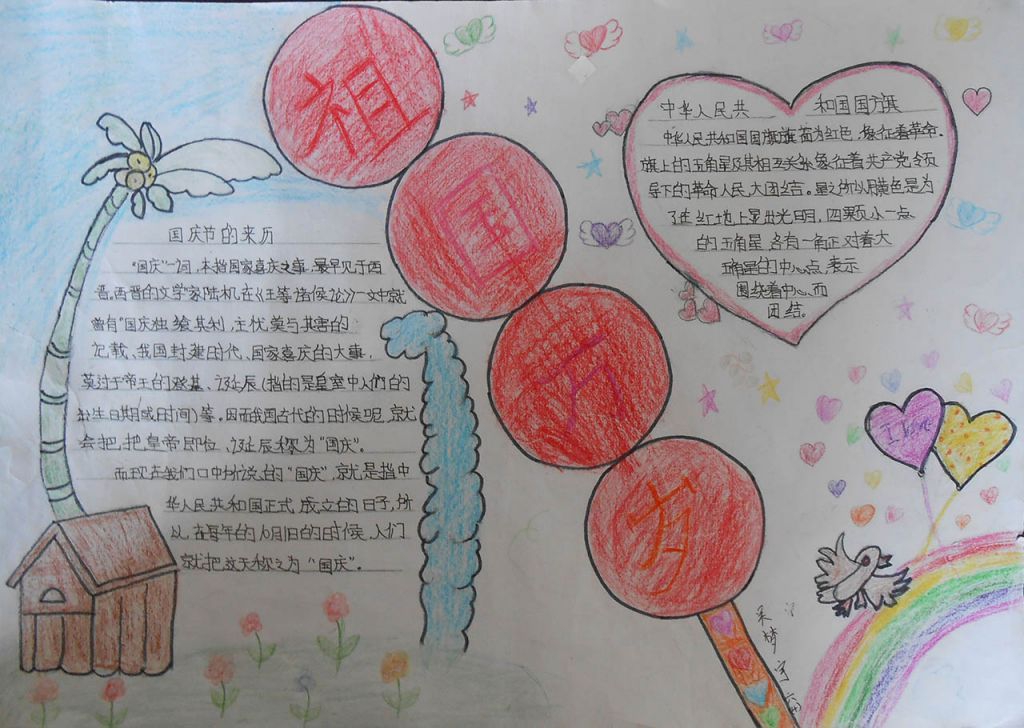 祖
国
万
岁
国庆节的来历
"国庆"一词,本指国家喜庆之事,最早见于西
晋,西晋的文学家陆机在《五等诸侯论》一文中就
曾有"国庆独飨其利,主忧莫与其害的
记载、我国封建时代、国家喜庆的大事,
莫过于帝王的登基、诞辰(指的是皇室中人们的
出生日期或日时间)等。因而我国古代的时候呢,就
会把,把皇帝即位、诞辰称为"国庆"。
而现在我们口中所说的"国庆",就是指中
华人民共和国正式成立的日子,所
以,在每年的10月1日的时候,人们
就把这天称之为"国庆"。
中华人民共 和国国旗
中华人民共和国国旗旗面为红色,象征着革命.
旗上的五角星及其相互关系象征着共产党领
导下的革命人民大团结。星之所以用黄色是为
了在红地上显出光明,四颗小一点
的五角星各有一角正对着大
五角星的中心点,表示
围绕着中心而
团结。
I love
梦宇